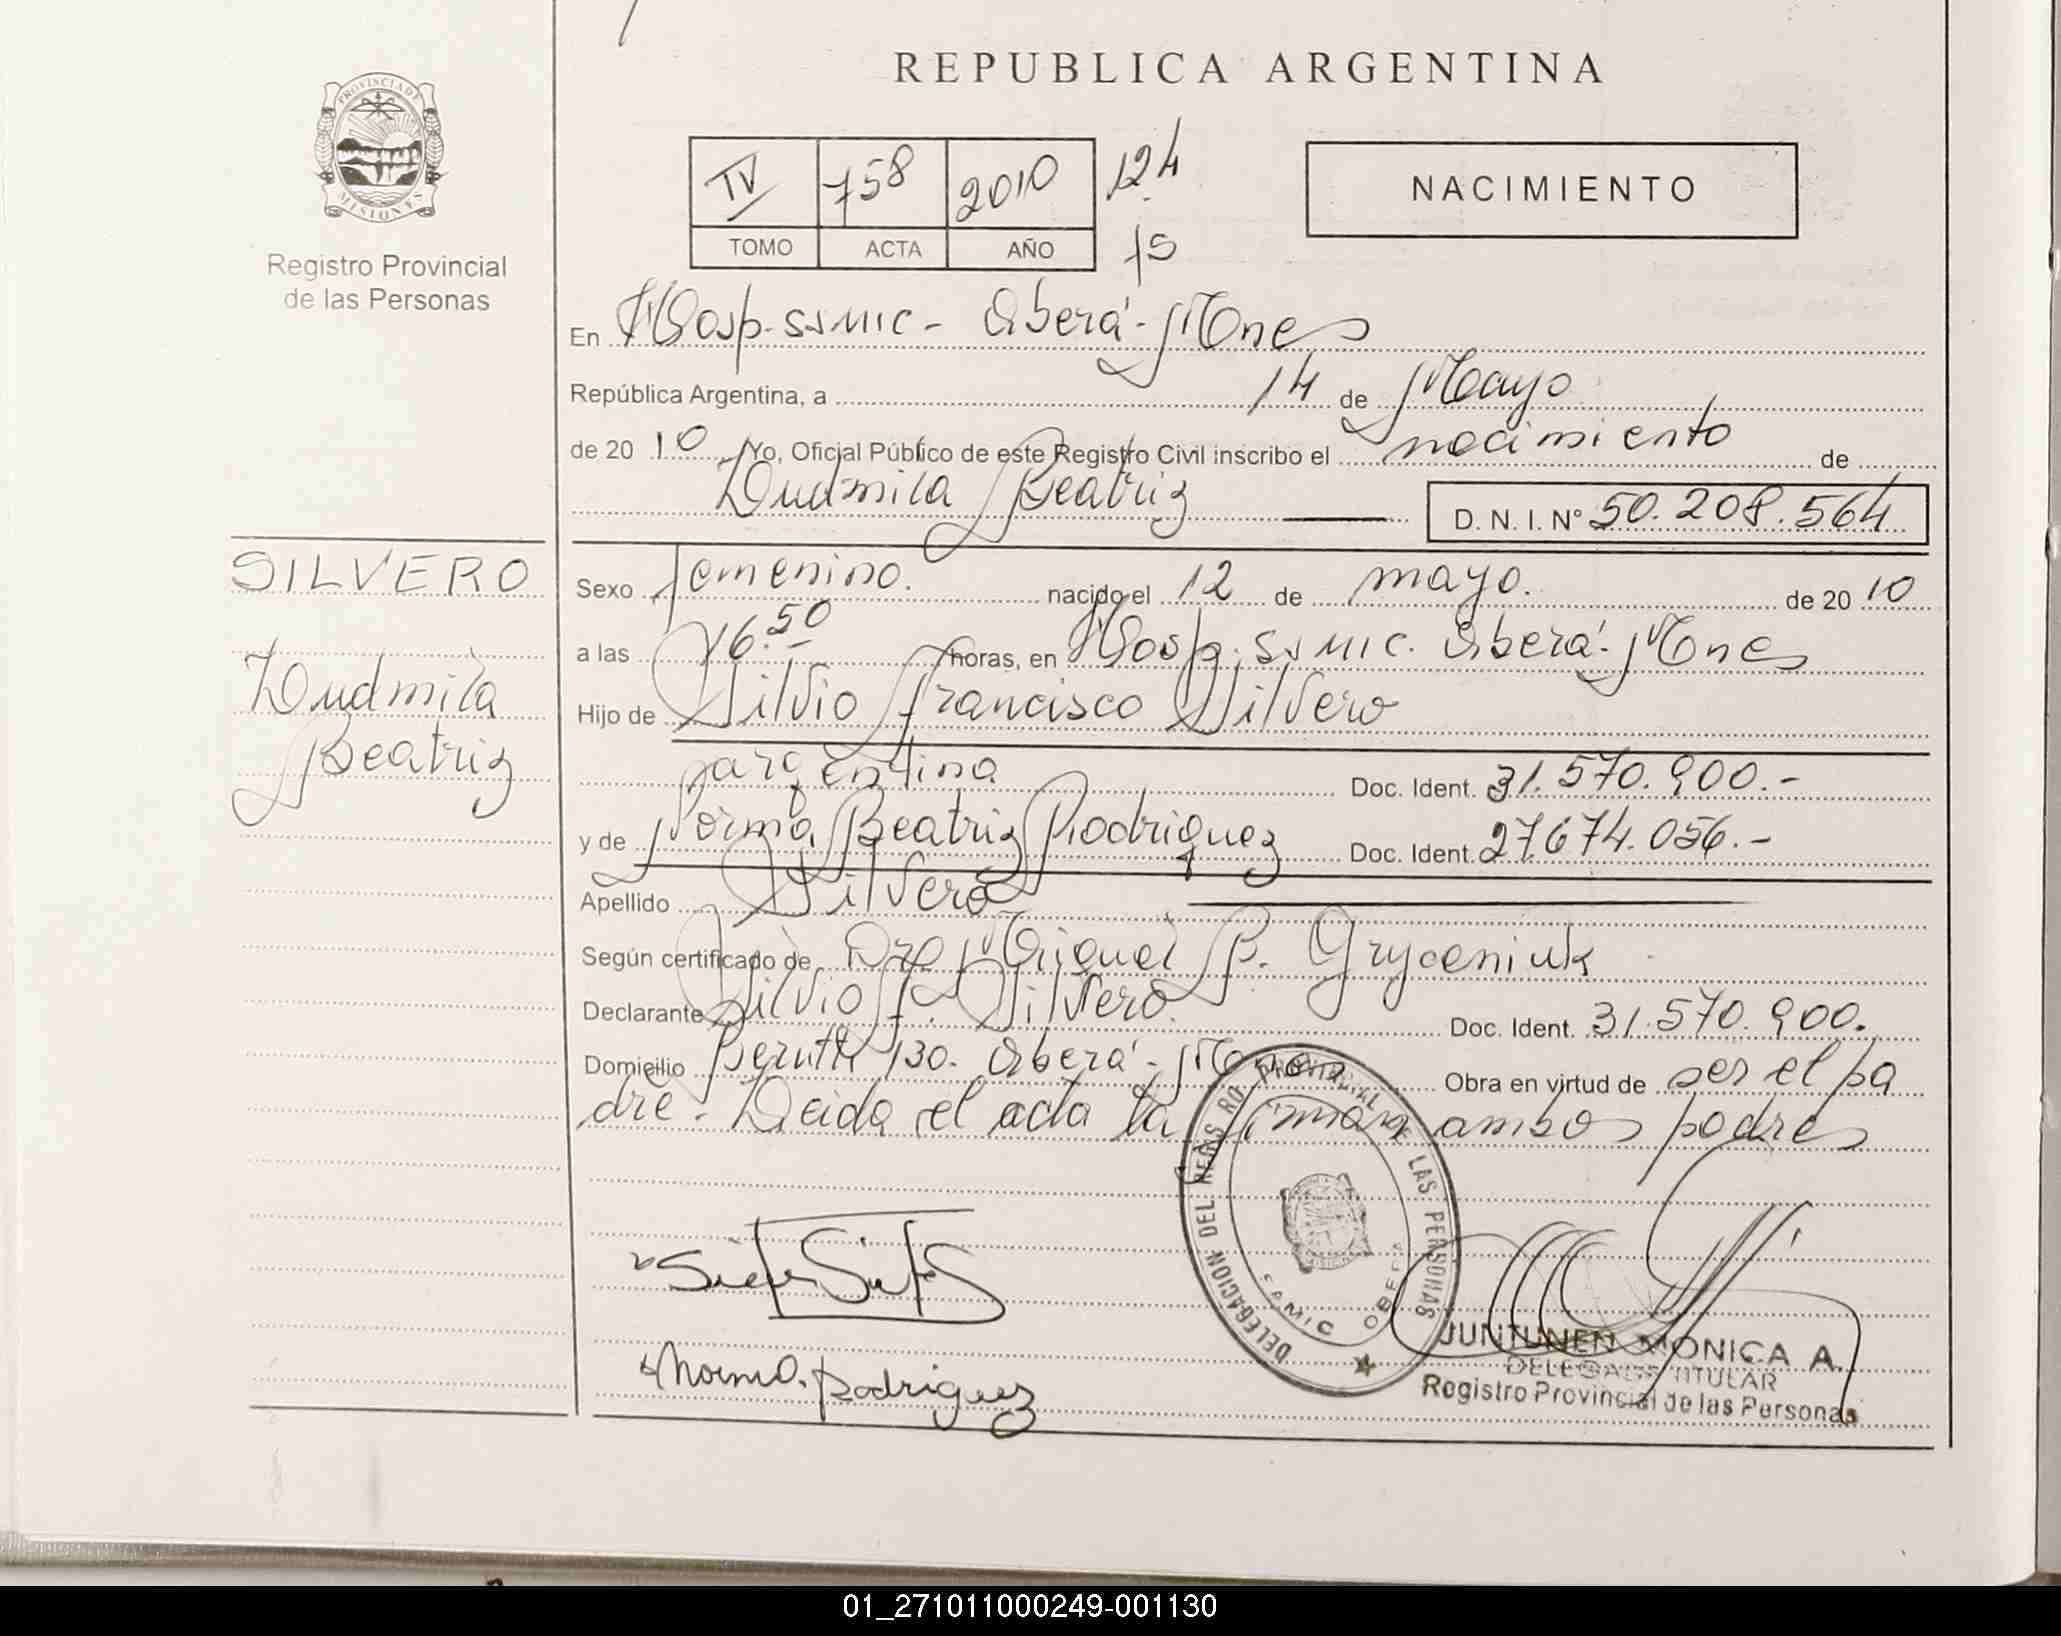 REPUBLICA ARGENTINA
PROVINCIA DE
MISIONES
Registro Provincial
de las Personas
IV 758 2010 124
TOMO ACTA AÑO
NACIMIENTO
En Hosp. SSMIC - Oberá - Mnes
República Argentina, a 14 de Mayo
de 2010 Yo, Oficial Público de este Registro Civil inscribo el nacimiento de
Ludmila Beatriz D. N. I. Nº 50.208.564
SILVERO
Ludmila
Beatriz
Sexo femenino. nacido el 12 de mayo. de 2010
a las 16.50 horas, en Hosp. SSMIC. Oberá - Mnes
Hijo de Silvio Francisco Silvero
argentina Doc. Ident. 31.570.900.-
y de Norma Beatriz Rodriguez Doc. Ident. 27.674.056.-
Apellido Silvero
Según certificado de Dr. Miguel P. Gryceniuk
Declarante Silvio F. Silvero. Doc. Ident. 31.570.900.
Domicilio Berutti 130. Oberá - Mnes Obra en virtud de ser el pa
dre. Leida el acta la firman ambos padres
DELEGACION DEL REGISTRO PROVINCIAL DE LAS PERSONAS
SAMIC OBERA
Norma. Rodriguez
JUNTUNEN MONICA A.
DELEGADA TITULAR
Registro Provincial de las Personas
01_271011000249-001130